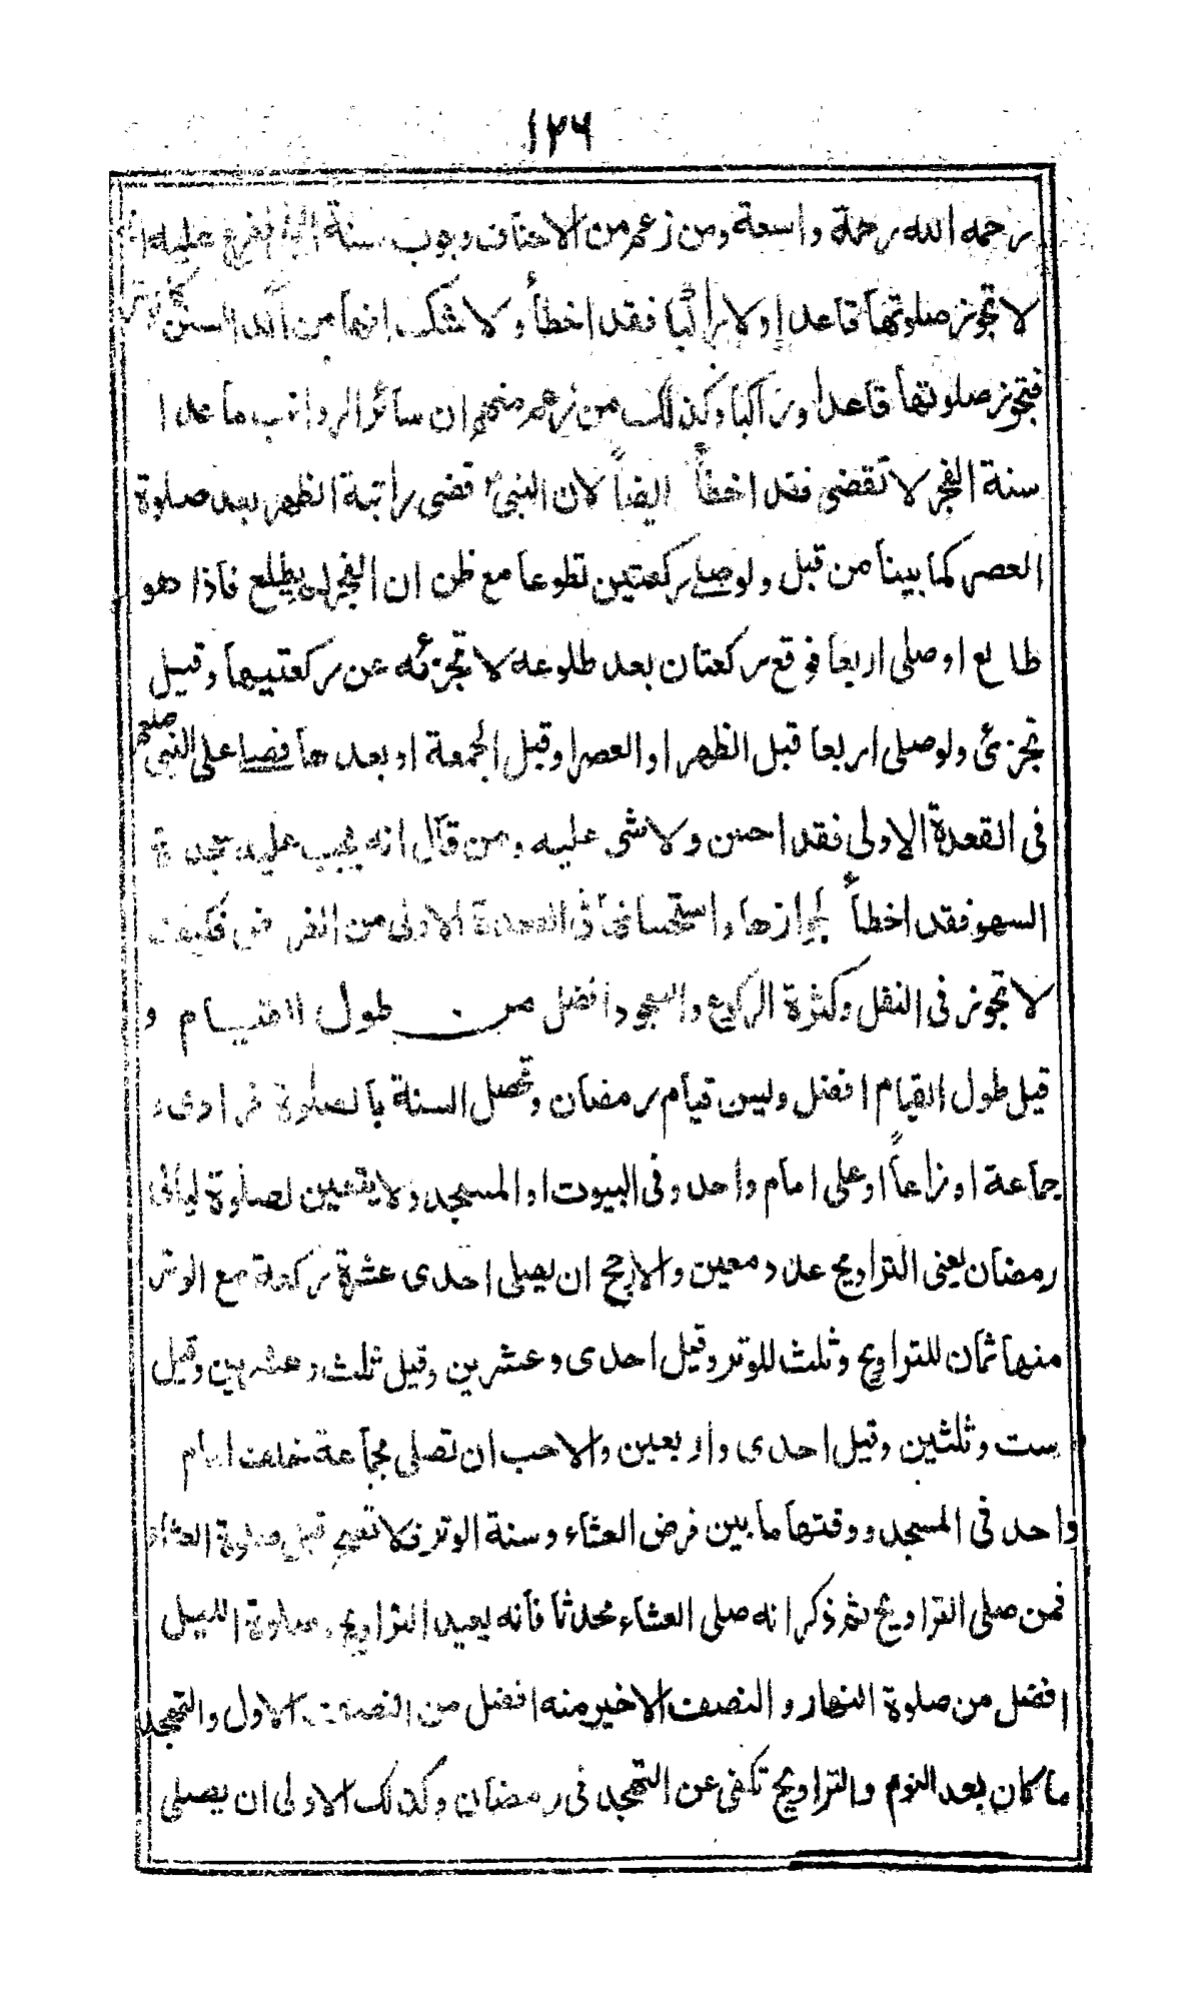 ١٢٦
رحمه الله رحمة واسعة ومن زعم من الاحناف وجوب سنة الفجر وفرع عليه
لا تجوز صلوتها قاعدا ولا راكبا فقد اخطأ ولا شك انها من آكد السنن
فتجوز صلوتها قاعدا وراكبا وكذلك من زعم منهم ان سائر الرواتب ما عدا
سنة الفجر لا تقضى فقد اخطأ ايضاً لان النبىؐ قضى راتبة الظهر بعد صلوة
العصر كما بينا من قبل ولو صلے ركعتين تطوعا مع ظن ان الفجر لم يطلع فاذا هو
طالع او صلى اربعا فوقع ركعتان بعد طلوعه لا تجزئه عن ركعتيها وقيل
تجزئ ولو صلى اربعا قبل الظهر او العصر او قبل الجمعة او بعدها فصلے على النبى صلعم
فى القعدة الاولى فقد احسن ولا شى عليه ومن قال انه يجب عليه سجدة
السهو فقد اخطأ لجوازها واستحسانها فى القعدة الاولى من الفرض فكيف
لا تجوز فى النفل وكثرة الركوع والسجود افضل من طول القيام و
قيل طول القيام افضل وليسن قيام رمضان وتحصل السنة بالصلوة فرادىء
جماعة اوزاعاً او على امام واحد وفى البيوت او المسجد ولا يتعين لصلوة ليالى
رمضان يعنى التراويح عدد معين والارجح ان يصلى احدى عشرة ركعة مع الوتر
منها ثمان للتراويح وثلث للوتر وقيل احدى وعشرين وقيل ثلث وعشرين وقيل
ست وثلثين وقيل احدى واربعين والاحب ان تصلى بجماعة خلف امام
واحد فى المسجد ووقتها ما بين فرض العشاء وسنة الوتر فلا تصح قبل صلوة العشاء
فمن صلى التراويح ثم ذكر انه صلى العشاء محدثا فانه يعيد التراويح وصلوة الليل
افضل من صلوة النهار والنصف الاخير منه افضل من النصف الاول والتهجد
ما كان بعد النوم والتراويح تكفى عن التهجد فى رمضان وكذلك الاولى ان يصلى